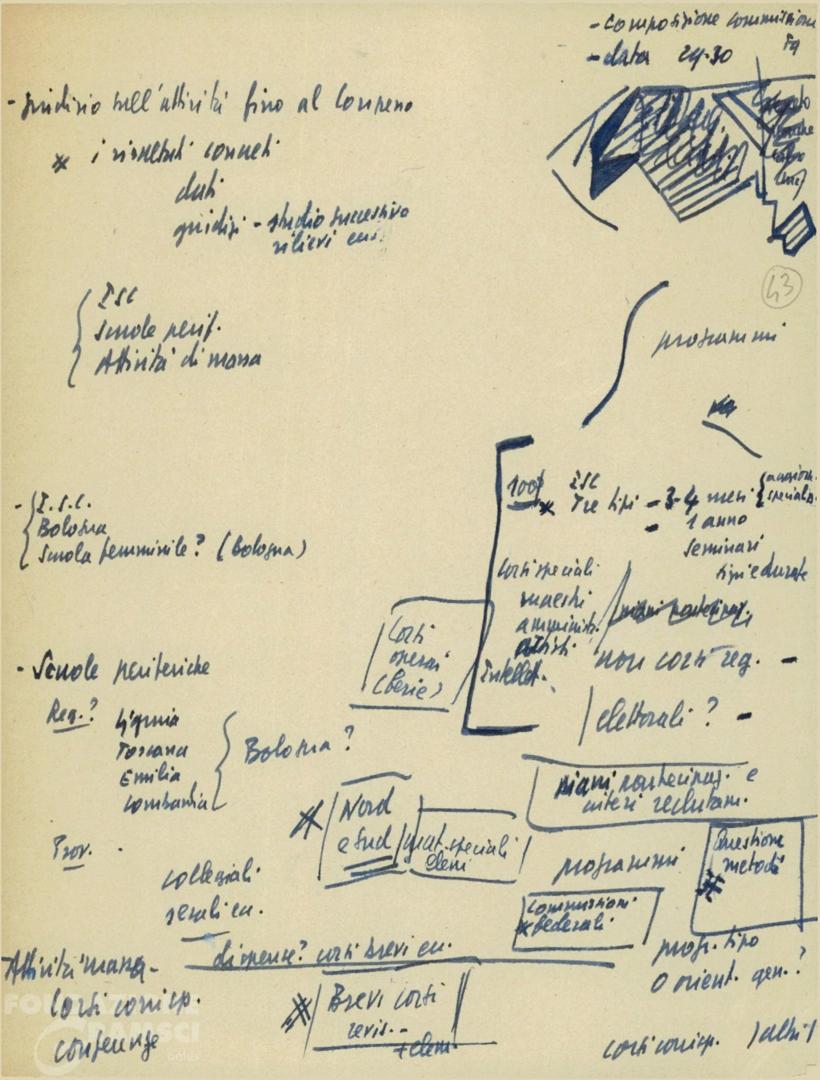 - composizione commissione
fq
- data 29-30
- giudizio sull'attività fino al Congresso
* i risultati concreti
dati
giudizi - studio successivo
rilievi ecc.
43
ISC
Scuole perif.
Attività di massa
programmi
- I.S.C.
Bologna
Scuola femminile? (Bologna)
100
ISC
* Tre tipi - 3-4 mesi
- 1 anno
seminari
tipi e durate
Corsi speciali
maestri
amministr.
artisti
Intellett.
non corsi reg. -
elettorali? -
Corsi
operai
(serie)
- Scuole periferiche
Reg.? Liguria
Toscana
Emilia
Lombardia
Bologna?
Prov.
collegiali
serali ecc.
* Nord
e Sud
mat. speciali
elem
piani partecipaz. e
criteri reclutam.
programmi
Questione
metodi
*
Commissioni
* federali
progr. tipo
o orient. gen.?
Attività massa -
dispense? corsi brevi ecc.
Corsi corrisp.
conferenze
* Brevi corsi
+ elem
corsi corrisp.
FONDAZIONE
GRAMSCI
onlus